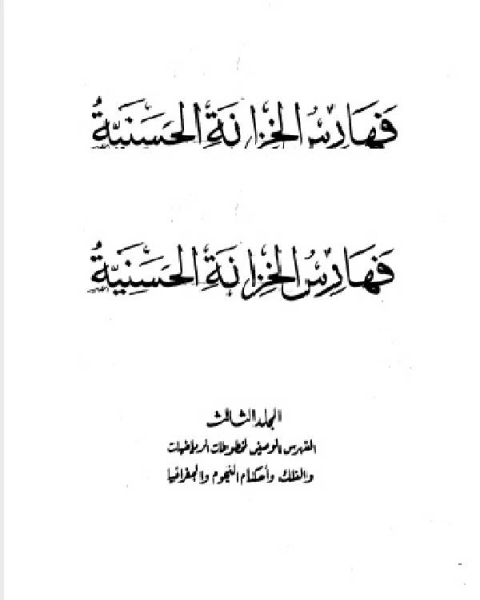 فَهَارِسُ الخِزَانَةِ الحَسَنِيَّةُ
فَهَارِسُ الخِزَانَةِ الحَسَنِيَّةُ
المجلد الثالث
الفهرس الوصفي لمخطوطات الرياضيات
والفلك وأحكام النجوم والجغرافيا